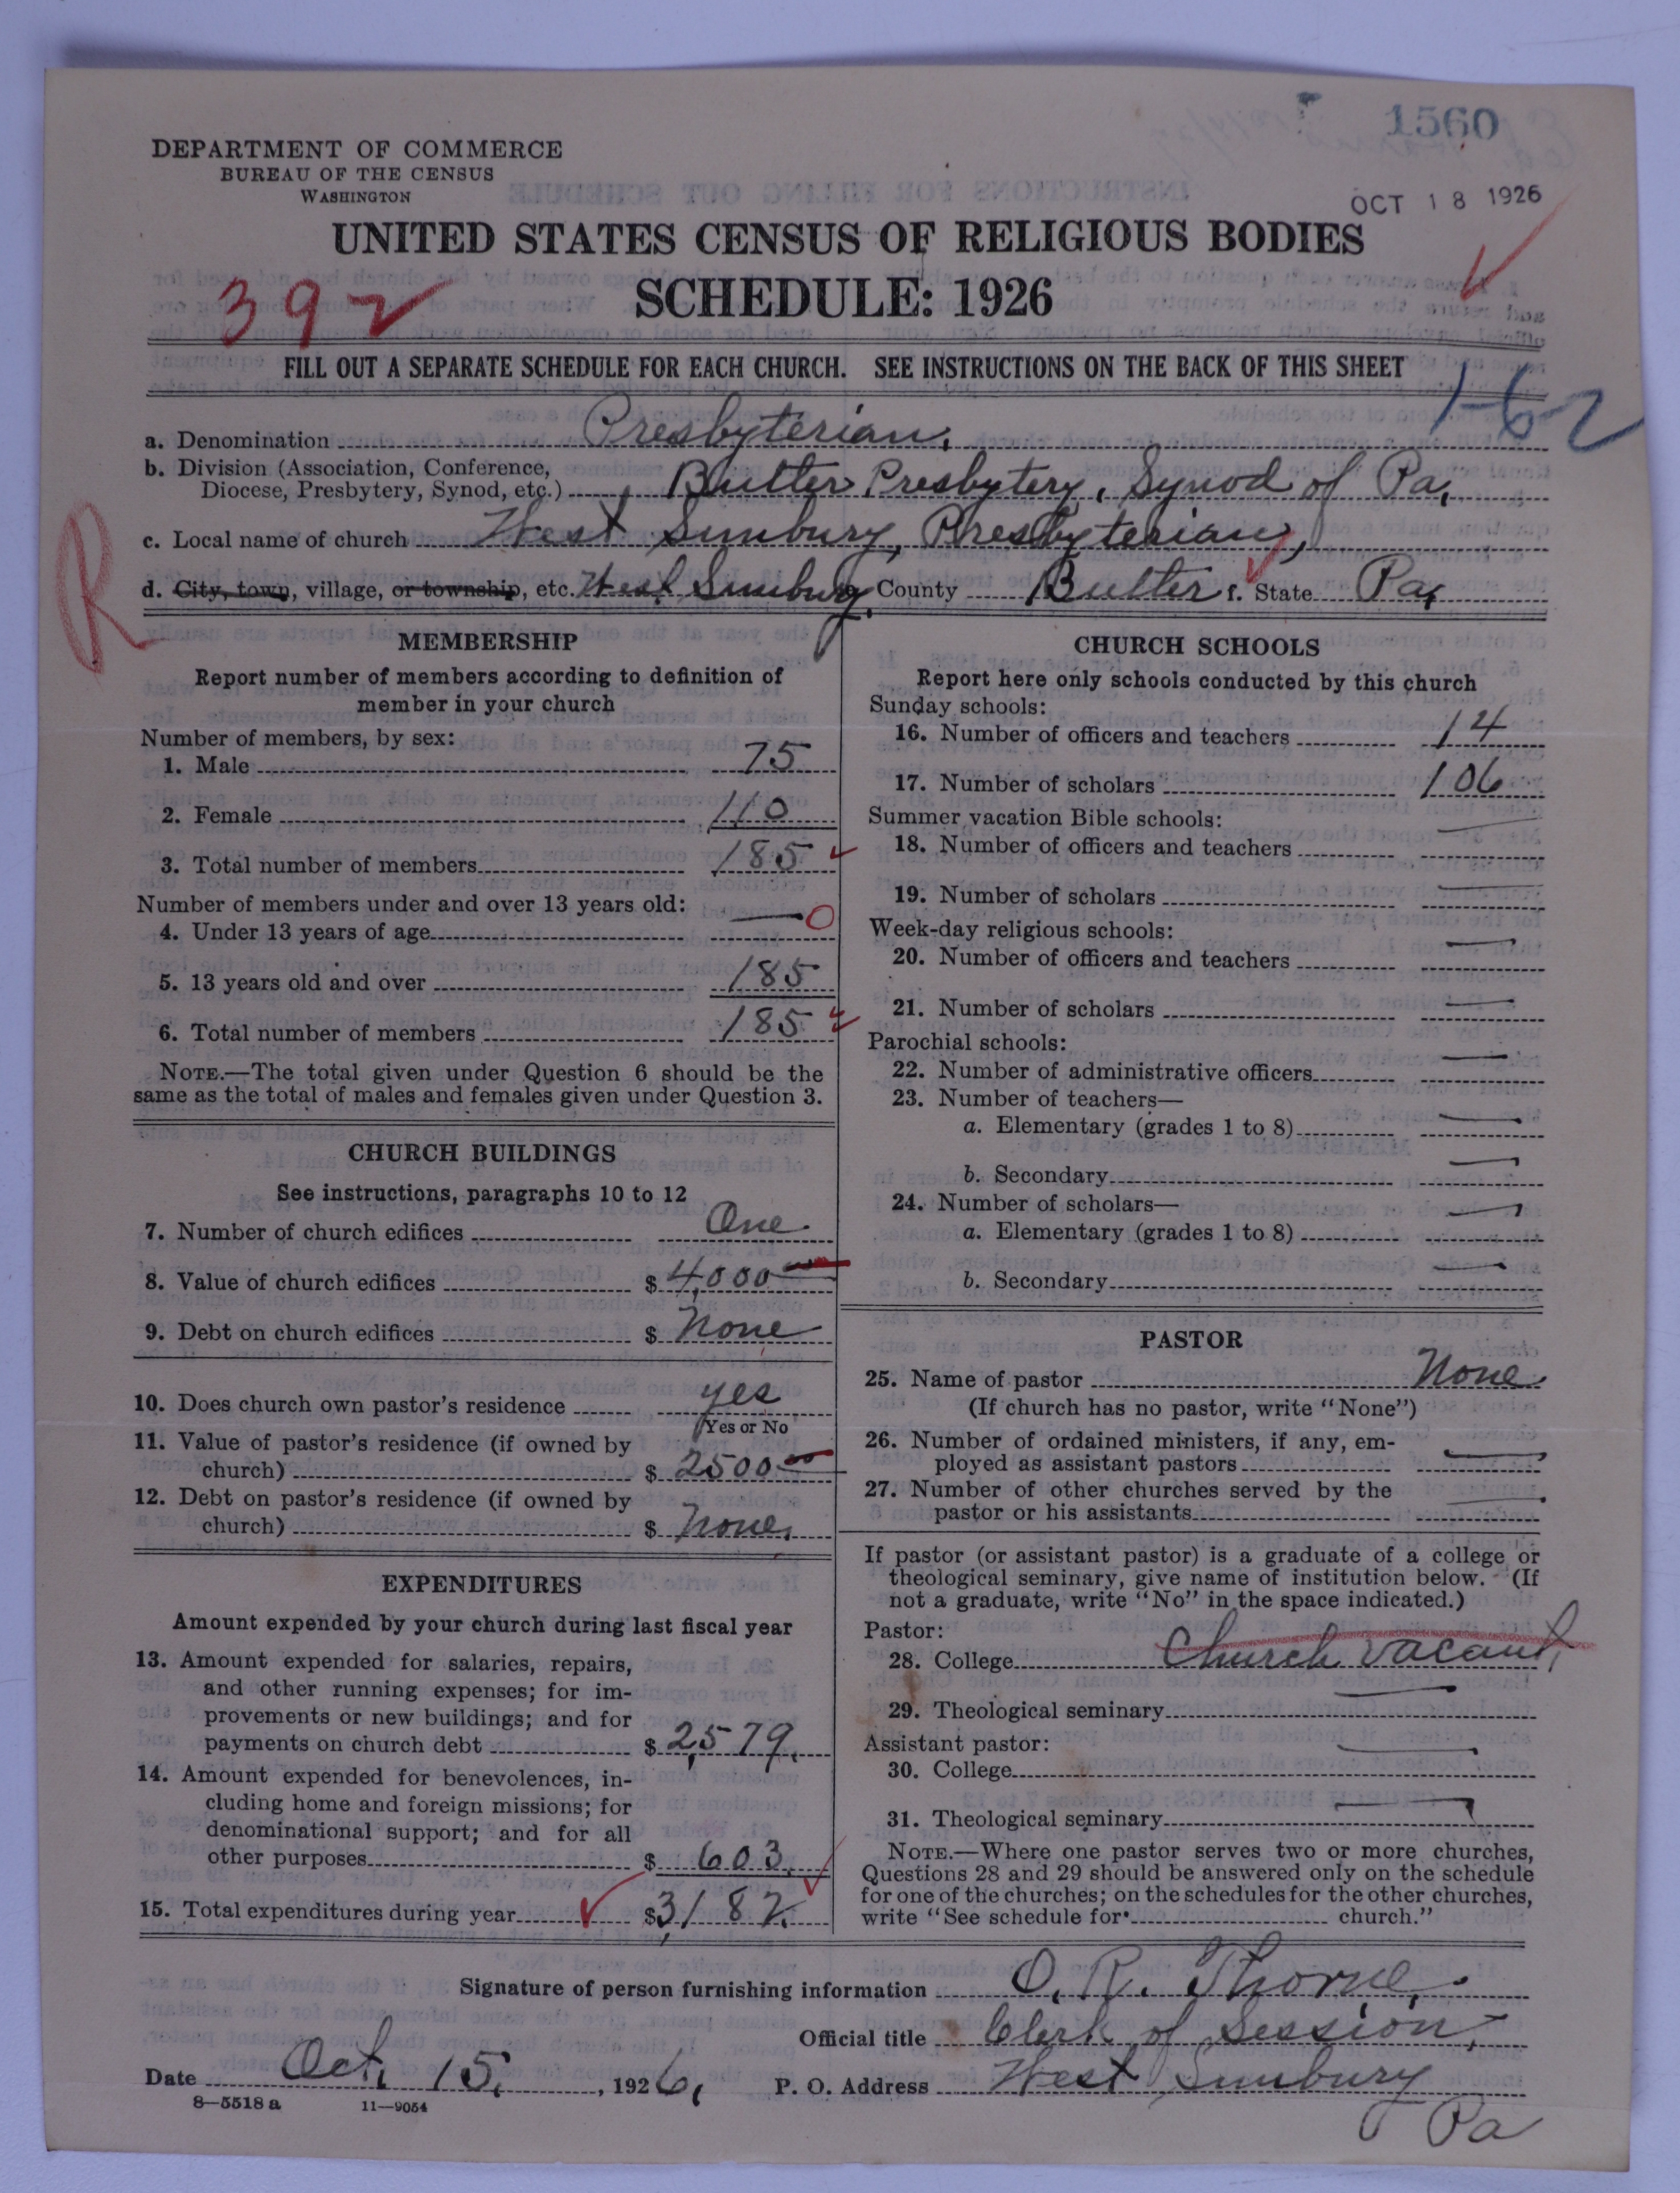 1560
DEPARTMENT OF COMMERCE
BUREAU OF THE CENSUS
WASHINGTON
OCT 18 1926
UNITED STATES CENSUS OF RELIGIOUS BODIES
SCHEDULE: 1926
392
FILL OUT A SEPARATE SCHEDULE FOR EACH CHURCH. SEE INSTRUCTIONS ON THE BACK OF THIS SHEET
162
a. Denomination Presbyterian,
b. Division (Association, Conference,
Diocese, Presbytery, Synod, etc.) Butler Presbytery, Synod of Pa,
c. Local name of church West Sunbury, Presbyterian,
R
d. City, town, village, or township, etc. West Sunbury County Butler f. State Pa,
MEMBERSHIP
Report number of members according to definition of
member in your church
Number of members, by sex:
1. Male 75
2. Female 110
3. Total number of members 185
Number of members under and over 13 years old:
4. Under 13 years of age — 0
5. 13 years old and over 185
6. Total number of members 185
NOTE.—The total given under Question 6 should be the
same as the total of males and females given under Question 3.
CHURCH BUILDINGS
See instructions, paragraphs 10 to 12
7. Number of church edifices One
8. Value of church edifices $ 4,000 00
9. Debt on church edifices $ None
10. Does church own pastor's residence yes
Yes or No
11. Value of pastor's residence (if owned by
church) $ 2500 00
12. Debt on pastor's residence (if owned by
church) $ None,
EXPENDITURES
Amount expended by your church during last fiscal year
13. Amount expended for salaries, repairs,
and other running expenses; for im-
provements or new buildings; and for
payments on church debt $ 2,579.
14. Amount expended for benevolences, in-
cluding home and foreign missions; for
denominational support; and for all
other purposes $ 603.
15. Total expenditures during year $3,182.
CHURCH SCHOOLS
Report here only schools conducted by this church
Sunday schools:
16. Number of officers and teachers 14
17. Number of scholars 106
Summer vacation Bible schools:
18. Number of officers and teachers —
19. Number of scholars —
Week-day religious schools:
20. Number of officers and teachers —
21. Number of scholars —
Parochial schools:
22. Number of administrative officers —
23. Number of teachers—
a. Elementary (grades 1 to 8) —
b. Secondary —
24. Number of scholars—
a. Elementary (grades 1 to 8) —
b. Secondary —
PASTOR
25. Name of pastor None.
(If church has no pastor, write "None")
26. Number of ordained ministers, if any, em-
ployed as assistant pastors —
27. Number of other churches served by the
pastor or his assistants —
If pastor (or assistant pastor) is a graduate of a college or
theological seminary, give name of institution below. (If
not a graduate, write "No" in the space indicated.)
Pastor:
28. College Church vacant,
29. Theological seminary —
Assistant pastor:
30. College —
31. Theological seminary —
NOTE.—Where one pastor serves two or more churches,
Questions 28 and 29 should be answered only on the schedule
for one of the churches; on the schedules for the other churches,
write "See schedule for church."
Signature of person furnishing information O. R. Thorne.
Official title Clerk of Session,
Date Oct. 15, 1926, P. O. Address West Sunbury
Pa
8—5518 a 11—9054